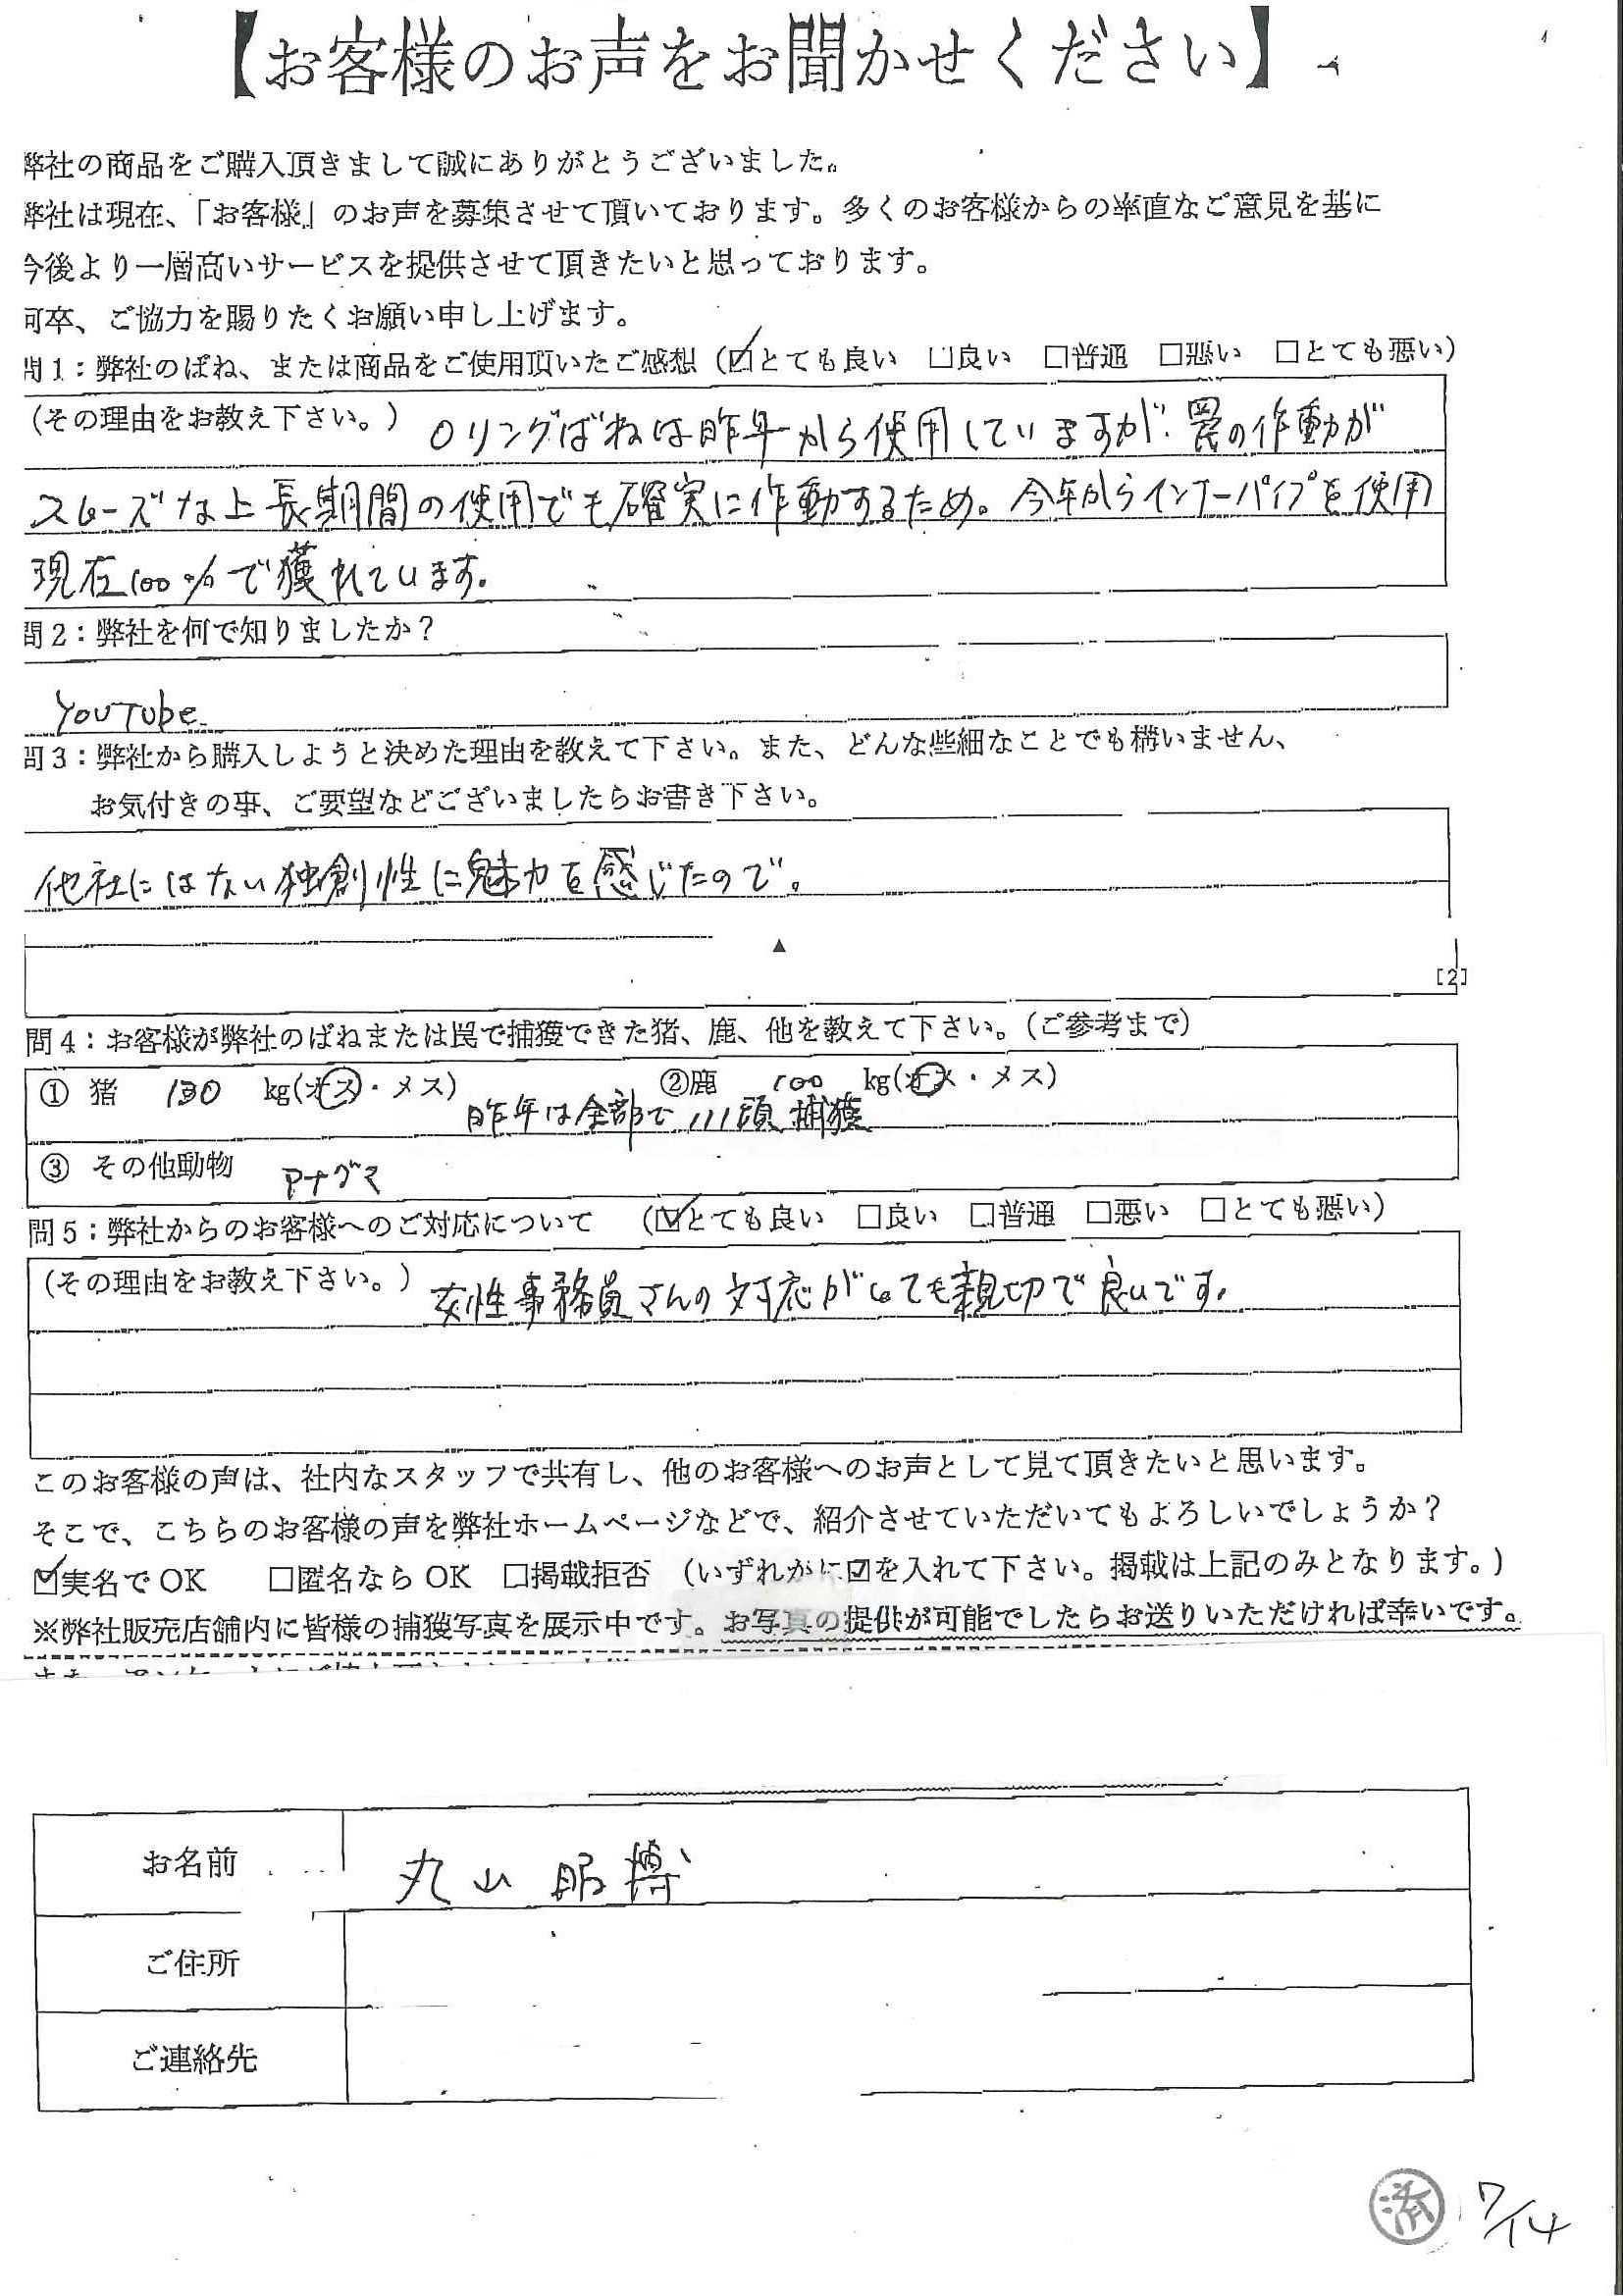 【お客様のお声をお聞かせください】
弊社の商品をご購入頂きまして誠にありがとうございました。
弊社は現在、「お客様」のお声を募集させて頂いております。多くのお客様からの率直なご意見を基に
今後より一層高いサービスを提供させて頂きたいと思っております。
何卒、ご協力を賜りたくお願い申し上げます。
問1：弊社のばね、または商品をご使用頂いたご感想（☑とても良い　□良い　□普通　□悪い　□とても悪い）
（その理由をお教え下さい。）Oリングばねは昨年から使用していますが、罠の作動が
スムーズな上長期間の使用でも確実に作動するため。今年からインナーパイプを使用
現在100%で獲れています。
問2：弊社を何で知りましたか？
YouTube
問3：弊社から購入しようと決めた理由を教えて下さい。また、どんな些細なことでも構いません、
お気付きの事、ご要望などございましたらお書き下さい。
他社にはない独創性に魅力を感じたので。
▲
[2]
問4：お客様が弊社のばねまたは罠で捕獲できた猪、鹿、他を教えて下さい。（ご参考まで）
① 猪　130　kg(オス・メス)　②鹿　100　kg(オス・メス)
昨年は全部で111頭捕獲
③ その他動物　アナグマ
問5：弊社からのお客様へのご対応について　（☑とても良い　□良い　□普通　□悪い　□とても悪い）
（その理由をお教え下さい。）女性事務員さんの対応がとても親切で良いです。
このお客様の声は、社内なスタッフで共有し、他のお客様へのお声として見て頂きたいと思います。
そこで、こちらのお客様の声を弊社ホームページなどで、紹介させていただいてもよろしいでしょうか？
☑実名でOK　□匿名ならOK　□掲載拒否　（いずれかに☑を入れて下さい。掲載は上記のみとなります。）
※弊社販売店舗内に皆様の捕獲写真を展示中です。お写真の提供が可能でしたらお送りいただければ幸いです。
お名前　丸山 博
ご住所
ご連絡先
済 7/14